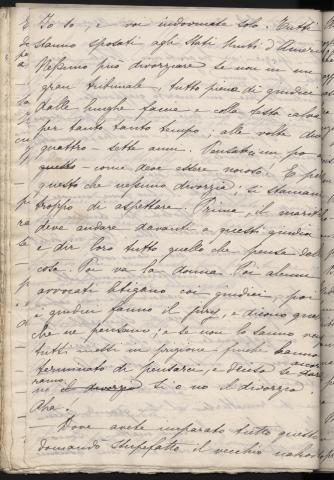 Io lo, e voi indovinate solo. Tutti
stanno sposati agli Stati Uniti d'America
Nessuno può divorziare se non in un
gran tribunale, tutto pieno di giudici
dalle lunghe facce e colla testa calva
per tanto tanto tempo, alle volte di
quattro - sette anni. Pensateci un po a
questo - come deve essere noioso. E per
questo che nessuno divorzia, si stancano
troppo di aspettare. Prima, il marito
deve andare davanti a questi giudici
e dir loro tutto quello che pensa della
cosa. Poi va la donna. Poi alcuni
avvocati litigano coi giudici, poi
i giudici fanno il jury, e dicono quel
che ne pensano; e se non lo sanno
tutti messi in prigione finchè hanno
terminato di pensarci, e deciso se
il divorzio si o no il divorzio
Aha.
- Dove avete imparato tutto questo
domandò stupefatto il vecchio